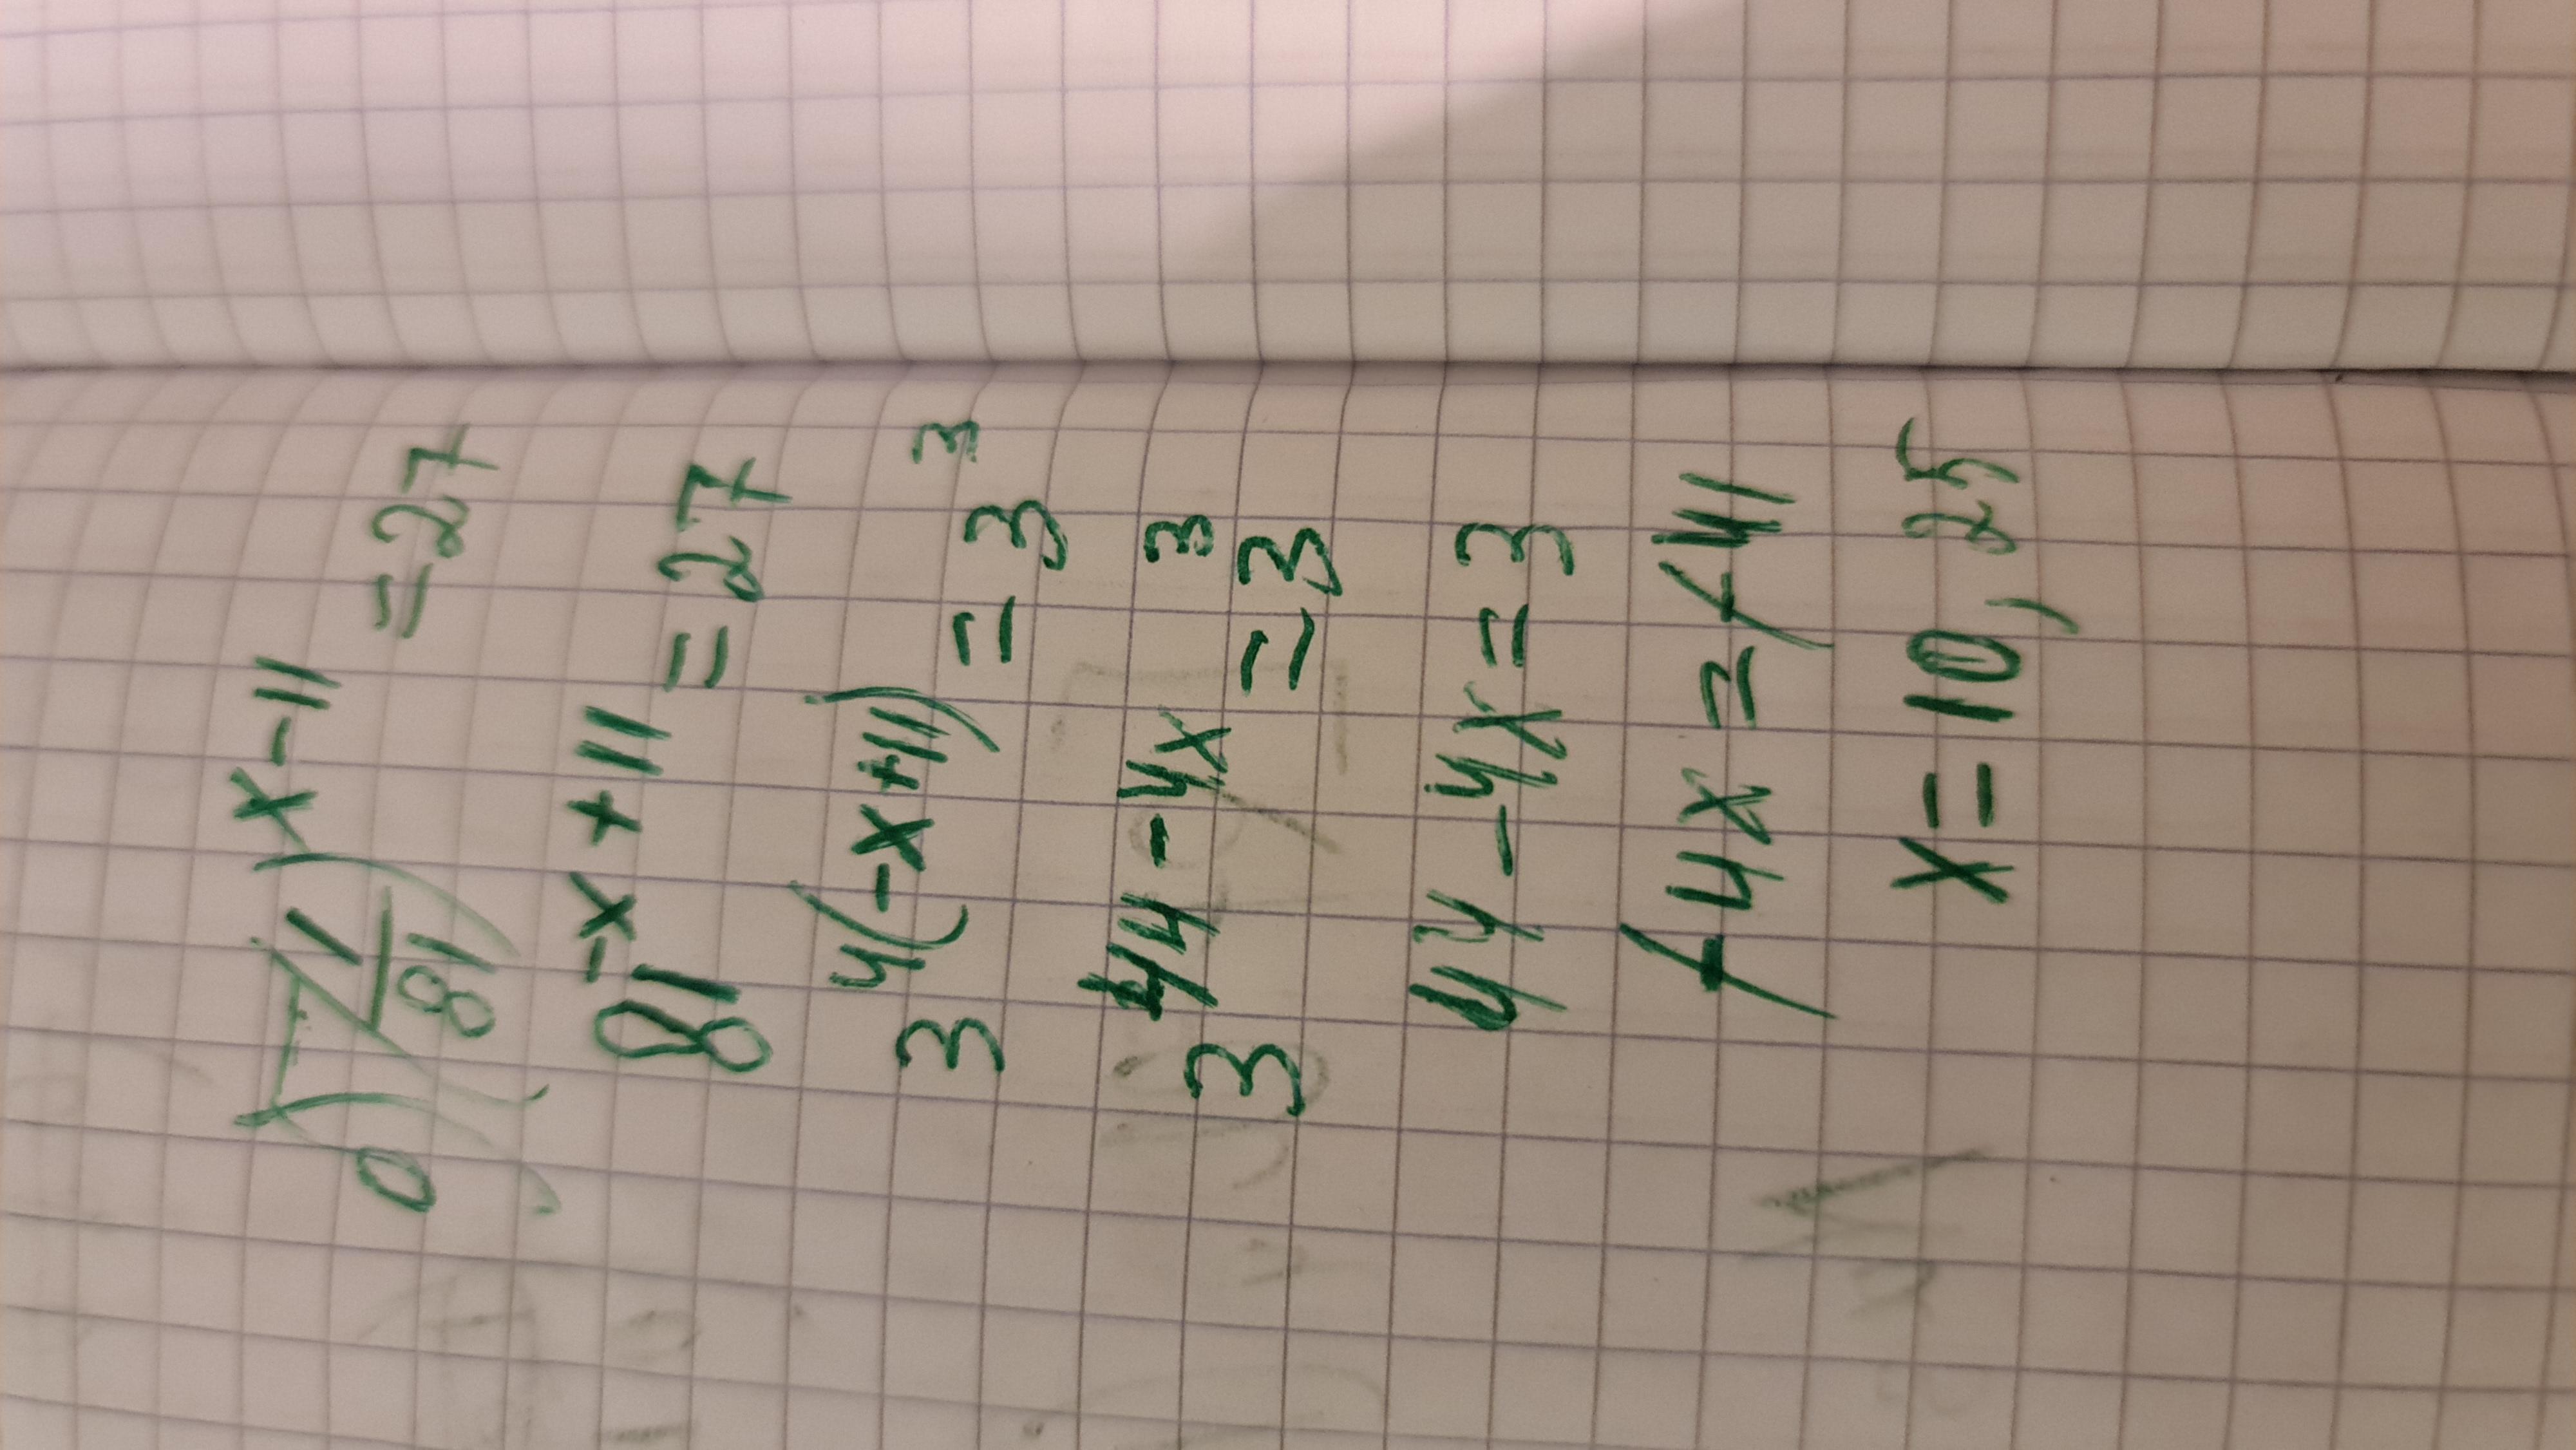 0) (1/81)^x-11 = 27
81^-x+11 = 27
3^4(-x+11) = 3^3
3^44-4x = 3^3
44-4x = 3
-4x = -41
x = 10,25